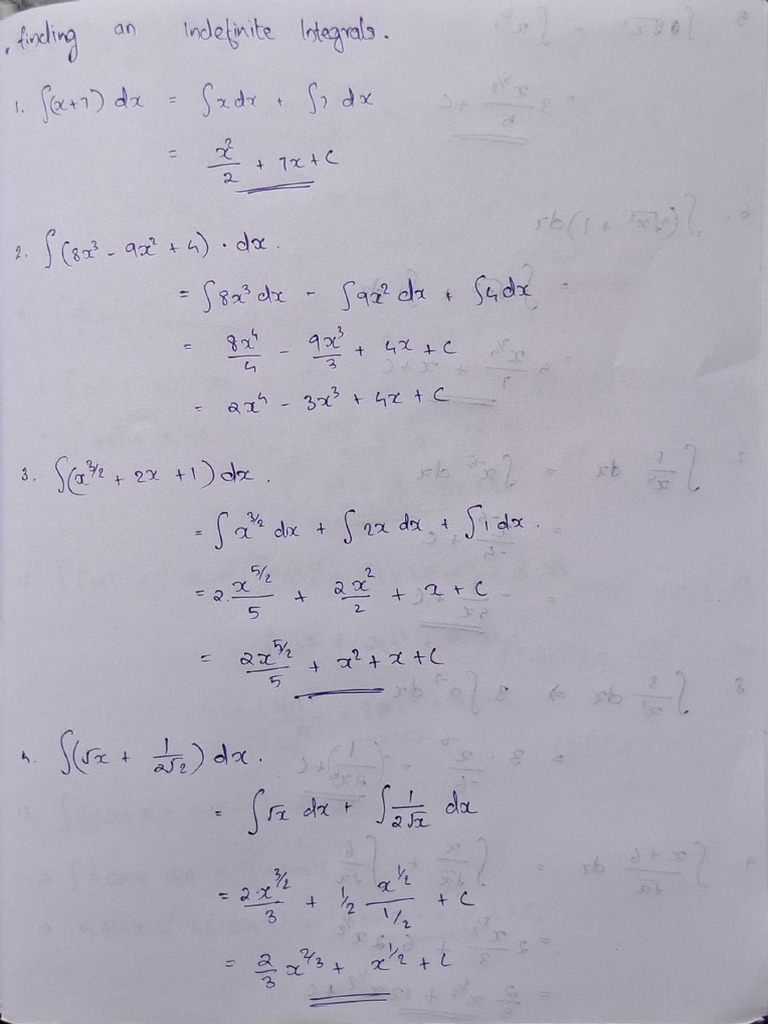 finding an Indefinite Integrals.
1. ∫(x+7) dx = ∫x dx + ∫7 dx
= x²/2 + 7x + C
2. ∫(8x³ - 9x² + 4) · dx.
= ∫8x³ dx - ∫9x² dx + ∫4 dx
= 8x⁴/4 - 9x³/3 + 4x + C
= 2x⁴ - 3x³ + 4x + C
3. ∫(x^(3/2) + 2x + 1) dx.
= ∫x^(3/2) dx + ∫2x dx + ∫1 dx.
= 2·x^(5/2)/5 + 2x²/2 + x + C
= 2x^(5/2)/5 + x² + x + C
4. ∫(√x + 1/(2√2)) dx.
= ∫√x dx + ∫1/(2√x) dx
= 2x^(3/2)/3 + 1/2 x^(1/2)/(1/2) + C
= 2/3 x^(2/3) + x^(1/2) + C